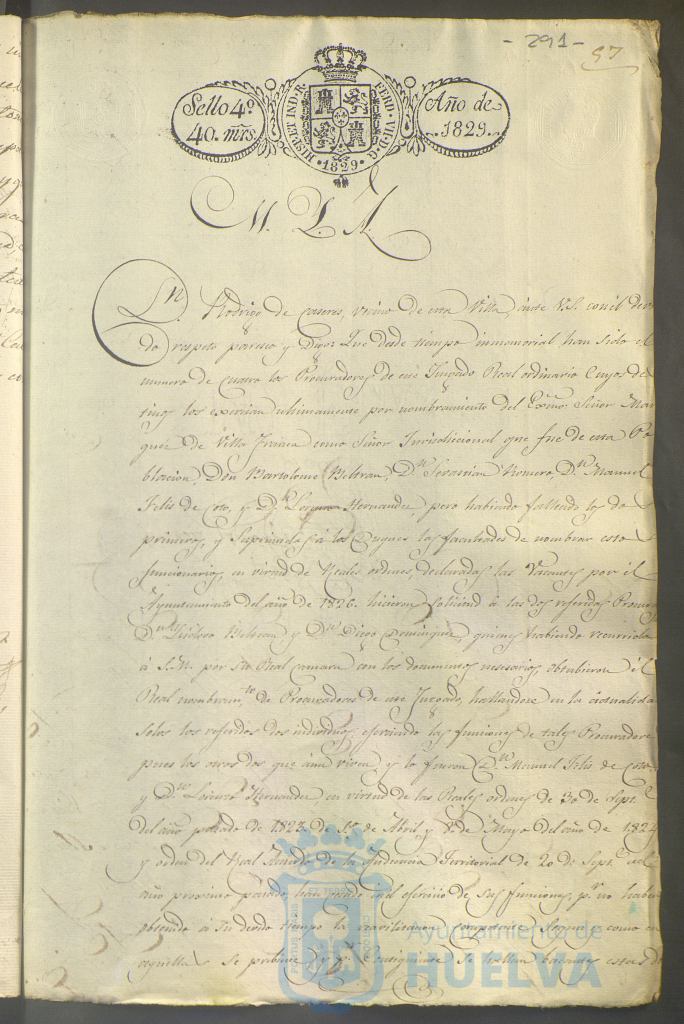 - 291 -
57
Sello 4º
40. mrs.
HISP. ET IND. R. FERD. VII. D. G.
1829
Año de
1829.
M. Y. S.
Dn. Rodrigo de Caseres, vecino de esta Villa, ante V.S. con el devi
do respeto paresco y Digo: Que desde tiempo inmemorial han sido el
numero de Cuatro los Procuradores de este Jusgado Real ordinario Cuyos des
tinos los exercian ultimamente por nombramiento del Exmo. Señor Mar
ques de Villa Franca como Señor Jurisdiccional que fue de esta Po
blacion, Don Bartolome Beltran, Dn. Sevastian Romero, Dn. Manuel
Felis de Coto, y Dn. Lorenzo Hernandez, pero habiendo fallecido los dos
primeros, y Suprimida á los Duques las facultades de nombrar estos
funcionarios, en virtud de Reales ordenes, declaradas las Vacantes por el
Ayuntamiento del año de 1826. hicieron Solicitud á las dos referidas Procuras
Dn. Isidoro Beltran y Dn. Diego Dominguez, quienes habiendo recurrido
á S.M. por su Real Camara con los documentos nesesarios, obtubieron el
Real nombramto. de Procuradores de este Jusgado, hallandose en la actualidad
Solos los referidos dos individuos, ejerciendo las funciones de tales Procuradores
pues los otros dos que aun viven, y lo fueron Dn. Manuel Felis de Coto
y Dn. Lorenzo Hernandez, en virtud de las Reales ordenes de 30 de Sept.
del año pasado de 1823, de 1º de Abril, y 8 de Mayo del año de 1824
y orden del Real Acuerdo de la Audiencia Territorial de 20 de Sept.e del
año proximo pasado, han cesado en el exercicio de sus funciones, pr. no haber
obtenido á su devido tiempo la revalidacion competente Segun como en
aquellas se previene, y pr. consiguiente se hallan vacantes estos de
PORTUS MARIS ET TERRAE CUSTODIA
Ayuntamiento de
HUELVA